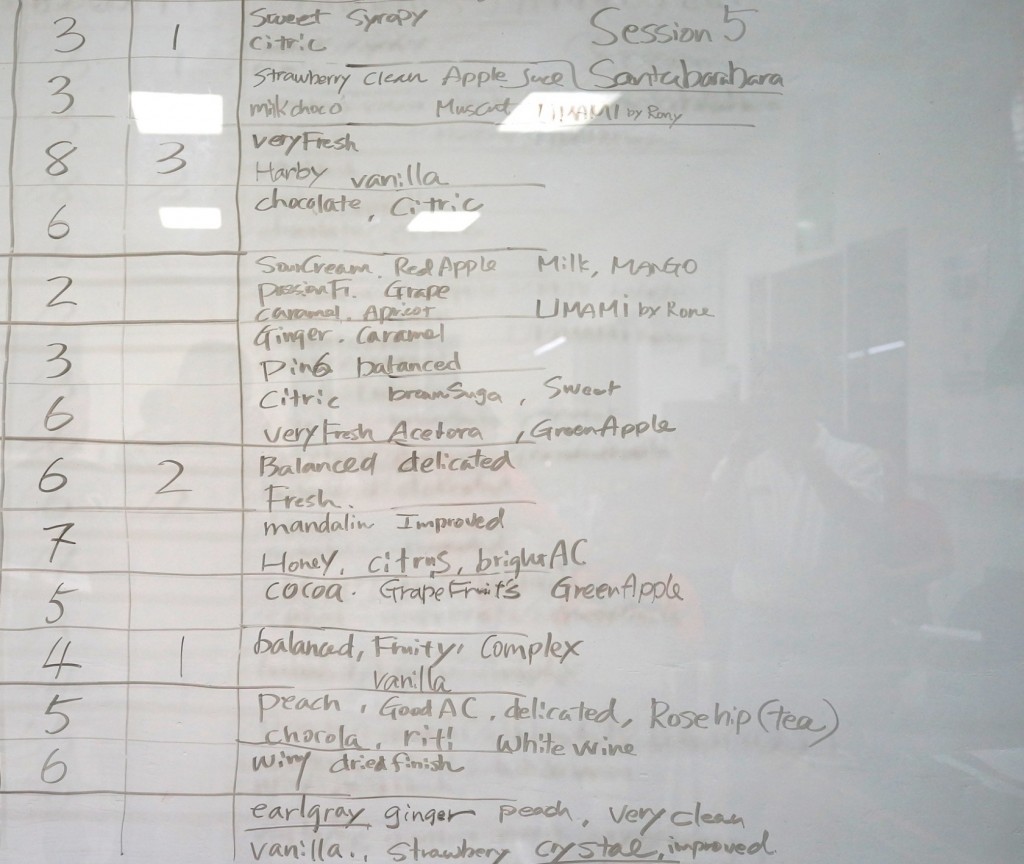 3 1 Sweet Syropy Session 5
Citric
3 Strawberry Clean Apple Juce Santabarabara
milkchoco Muscat UMAMI by Rony
8 3 veryFresh
Harby vanilla
6 chocolate, Citric
SourCream. Red Apple Milk, MANGO
2 Grape
Caramel. Apricot UMAMi by Rone
Ginger. Caramel
3 balanced
Citric brownSuga, Sweet
6 veryFresh Acerora, GreenApple
6 2 Balanced delicated
Fresh.
7 mandalin Improved
Honey, citrus, bright AC
5 cocoa. GrapeFruits GreenApple
4 1 balanced, Fruity, Complex
vanilla
5 peach, Good AC, delicated, Rosehip (tea)
chocola, White wine
6 winy dried finish
earlgray ginger peach, very clean
vanilla., Strawbery crystal, improved.